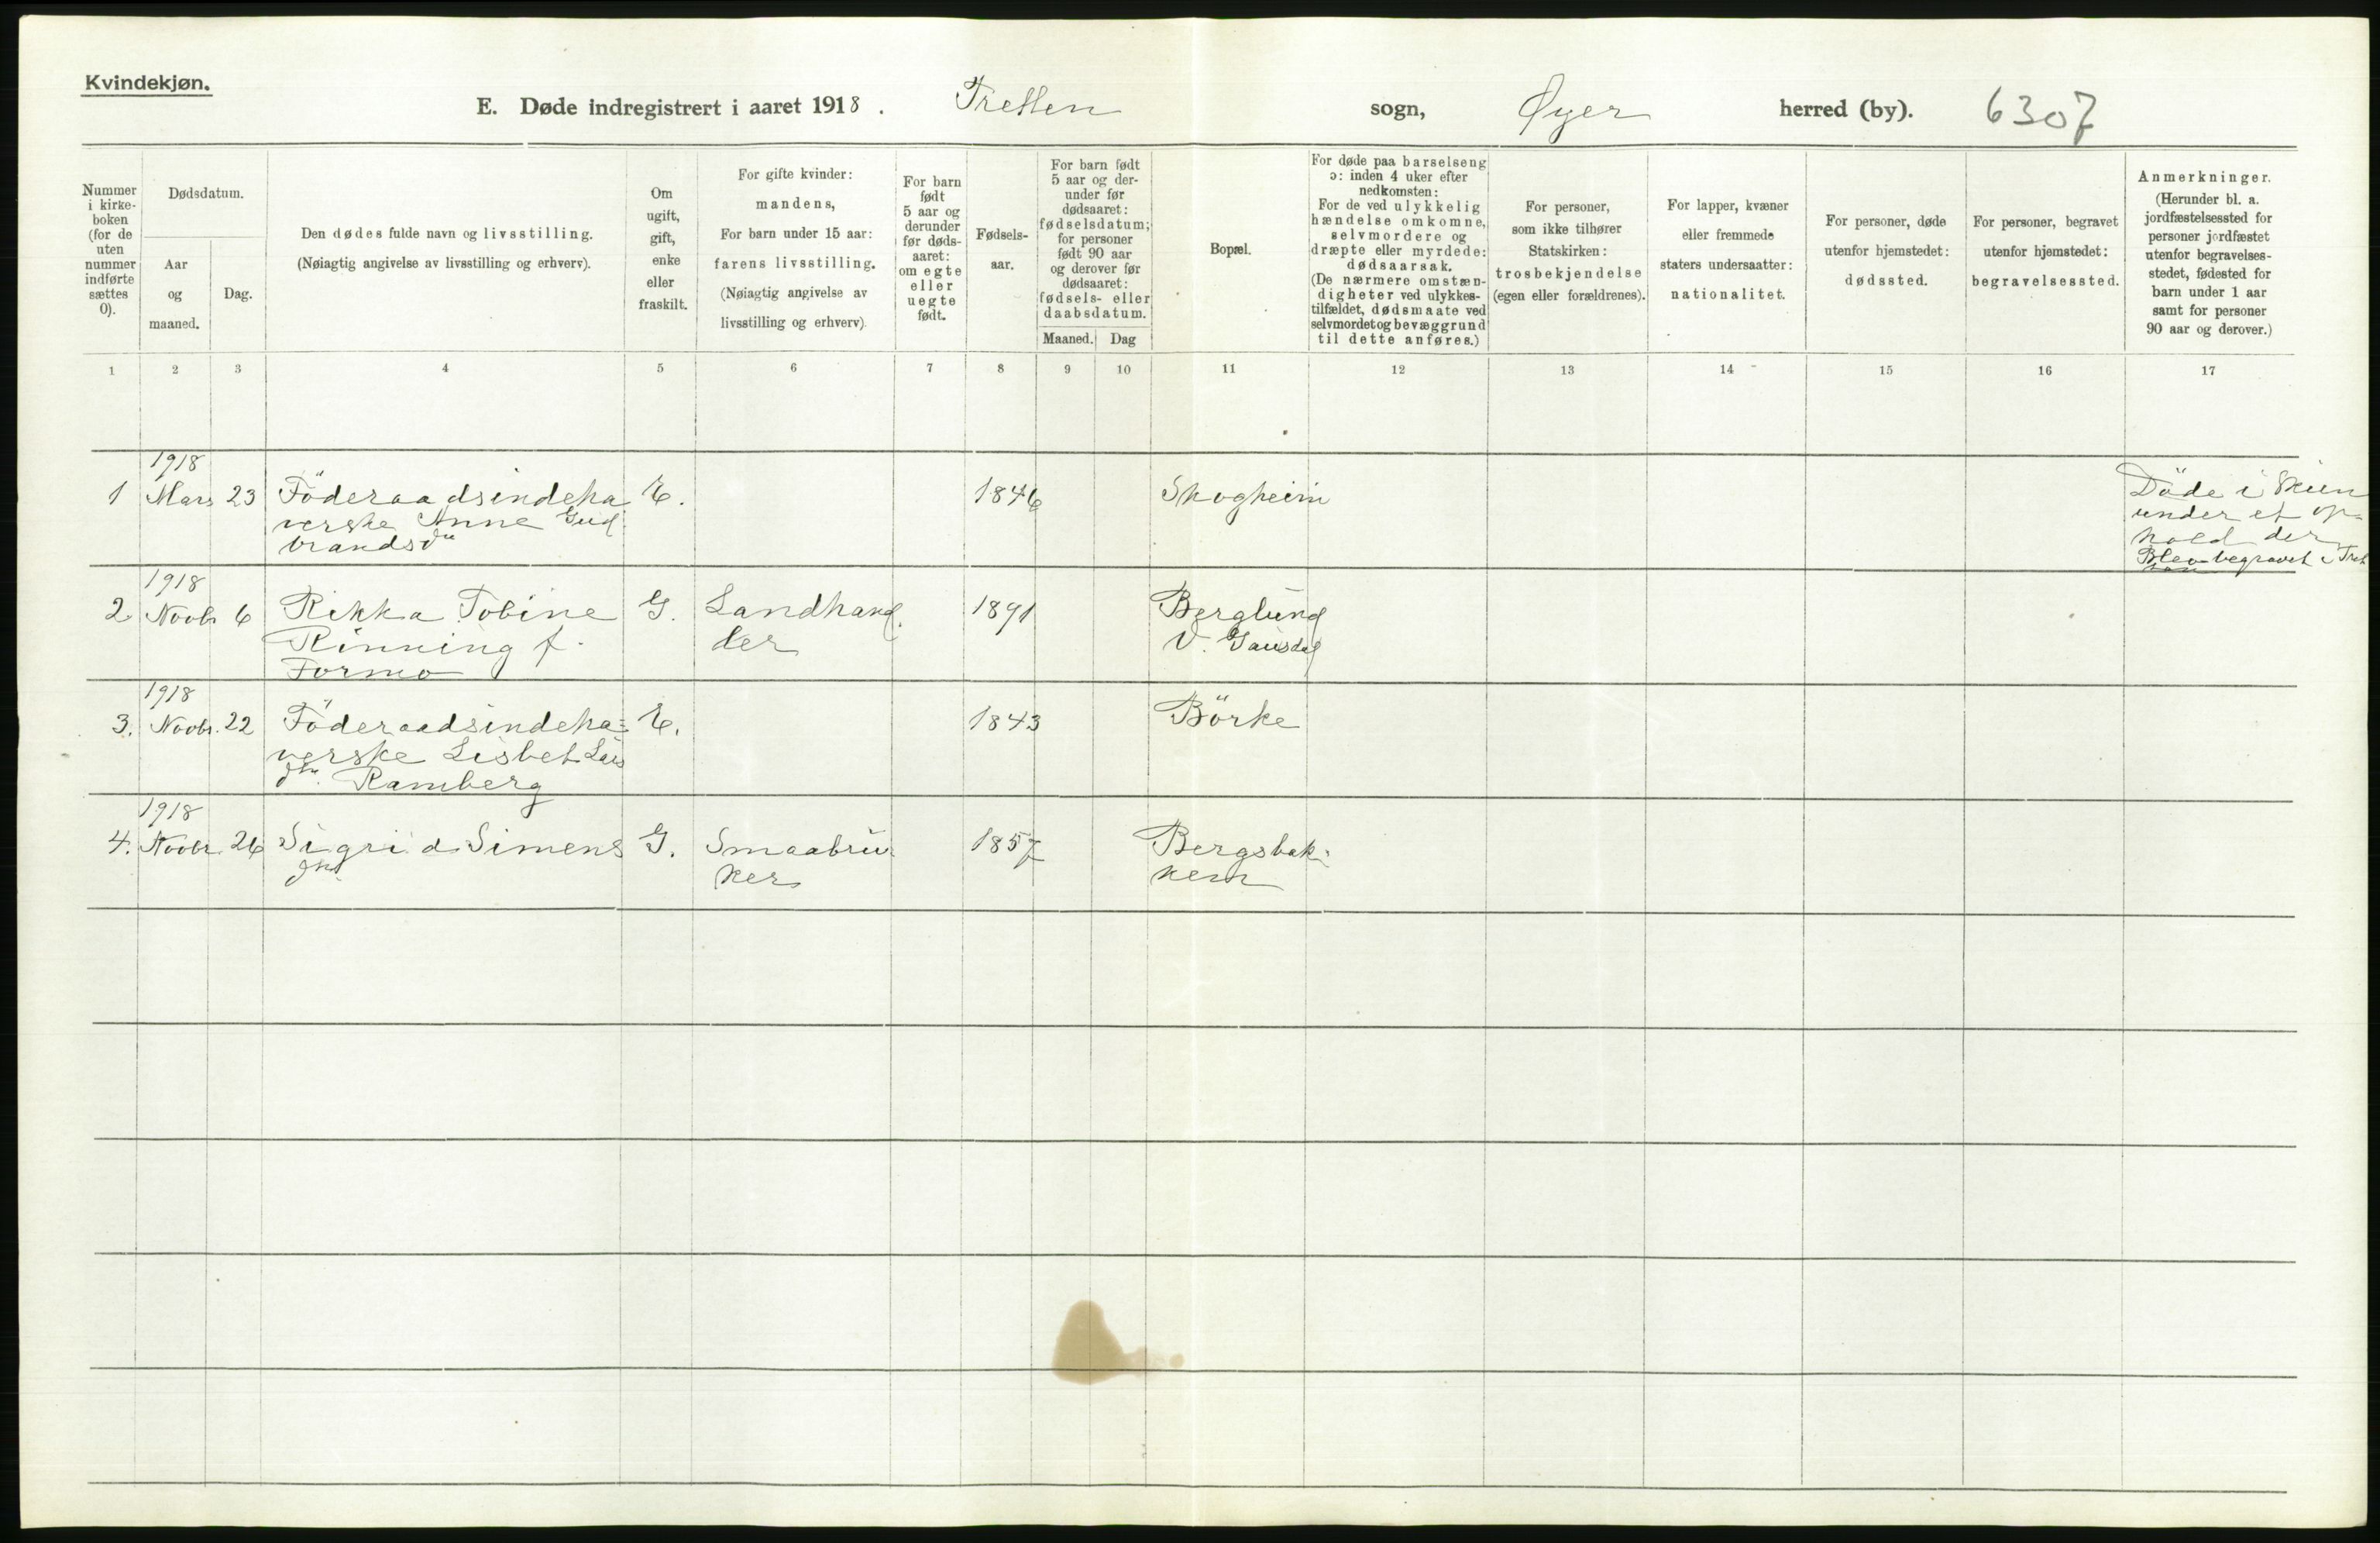 Kvindekjøn.
E. Døde indregistrert i aaret 1918. Tretten sogn, Øyer herred (by). 6307
Nummer i kirke-boken (for de uten nummer indførte sættes 0).
Dødsdatum.
Aar og maaned.
Dag.
Den dødes fulde navn og livsstilling.
(Nøiagtig angivelse av livsstilling og erhverv).
Om ugift, gift, enke eller fraskilt.
For gifte kvinder:
mandens,
For barn under 15 aar:
farens livsstilling.
(Nøiagtig angivelse av
livsstilling og erhverv).
For barn født 5 aar og derunder før døds-aaret: om egte eller uegte født.
Fødsels-aar.
For barn født 5 aar og der-under før dødsaaret: fødselsdatum; for personer født 90 aar og derover før dødsaaret: fødsels- eller daabsdatum.
Maaned.
Dag
Bopæl.
For døde paa barselseng
ɔ: inden 4 uker efter
nedkomsten:
For de ved ulykkelig
hændelse omkomne,
selvmordere og
dræpte eller myrdede:
dødsaarsak.
(De nærmere omstæn-
digheter ved ulykkes-
tilfældet, dødsmaate ved
selvmordet og bevæggrund
til dette anføres.)
For personer,
som ikke tilhører
Statskirken:
trosbekjendelse
(egen eller forældrenes).
For lapper, kvæner
eller fremmede
staters undersaatter:
nationalitet.
For personer, døde
utenfor hjemstedet:
dødssted.
For personer, begravet
utenfor hjemstedet:
begravelsessted.
Anmerkninger.
(Herunder bl. a.
jordfæstelsessted for
personer jordfæstet
utenfor begravelses-
stedet, fødested for
barn under 1 aar
samt for personer
90 aar og derover.)
1 2 3 4 5 6 7 8 9 10 11 12 13 14 15 16 17
1918
1 Mars 23 Föderaadsindeha E. 1846 Skogheim Döde i Skien
verske Anne Gud under et op-
brandsdtr hold der
Blev begravet i Tret
1918
2 Novbr 6 Rikka Tobine G. Landhand. 1891 Berglund
Rinning f. ler V. Gausdal
Formo
1918
3. Novbr. 22 Föderaadsindeha= E. 1843 Börke
verske Lisbet Lars
dtr. Ramberg
1918
4. Novbr. 26 Sigrid Simens G. Smaabru- 1857 Bergsbak-
dtr ker kem